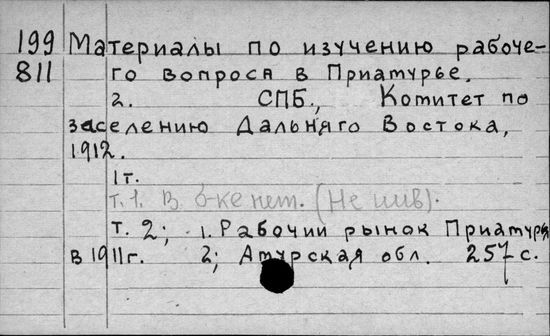 199 Материалы по изучению рабоче-
811 го вопроса в Приамурье.
2. СПБ., Комитет по
заселению Дальняго Востока,
1912.
1т.
т. 1. В б-ке нет. (Не инв).
т. 2; 1. Рабочий рынок Приамурья
в 1911г. 2; Амурская обл. 257 с.